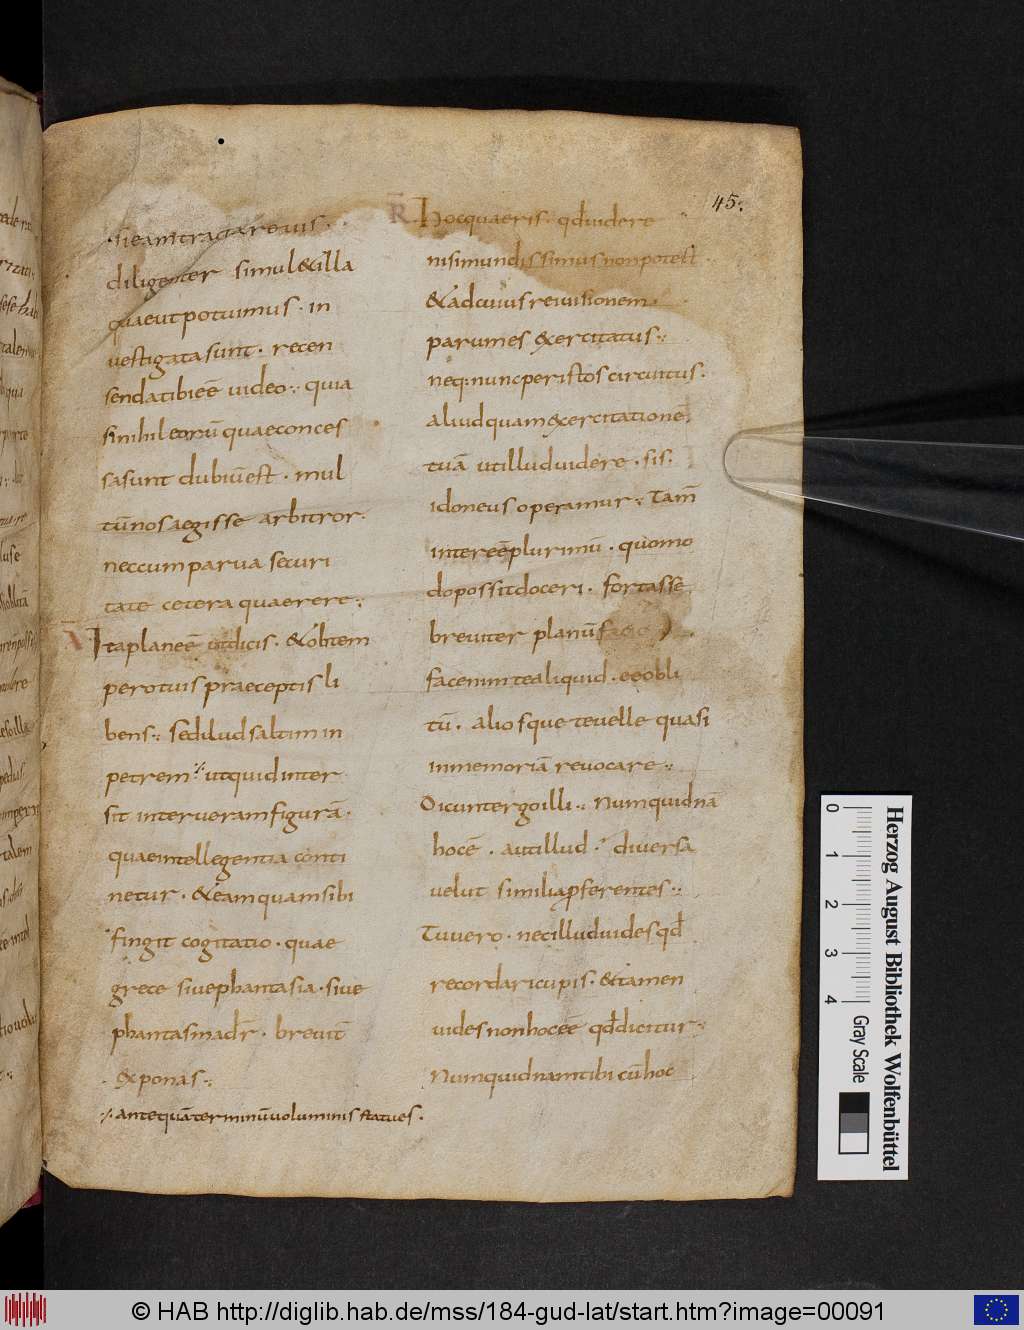 si eam tractare uis.
diligenter simul & illa
quae ut potuimus. in
uestigata sunt. recen
senda tibi eē uideo:, quia
si nihil eorū quae conces
sa sunt dubiū est. mul
tū nos aegisse arbitror.
nec cum parua securi
tate cetera quaerere:,
Ita plane ē ut dicis. & obtem
pero tuis praeceptis li
bens:, sed illud saltim in
petrem ⁒ ut quid inter
sit inter ueram figurā.
quae intellegentia conti
netur. & eam quam sibi
fingit cogitatio. quae
grece siue phantasia. siue
phantasma dr̄. breuit̄
exponas:,
⁒ antequā terminū uoluminis statues.
R̄. Hoc quaeris. qđ uidere
nisi mundissimus non potest.
& ad cuius rei uisionem.
parum es exercitatus:,
neq: nunc per istos circuitus.
aliud quam exercitationē
tuā ut illud uidere. sis.
idoneus operamur:, Tam̄
interēē plurimū. quomo
do possit doceri. fortasse
breuiter planū facio
fac enim te aliquid. eē obli
tū. aliosque te uelle quasi
in memoriā reuocare:,
Dicunt ergo illi:, Numquidnā
hoc ē. aut illud. diuersa
uelut similia p̄ferentes:,
Tu uero. nec illud uides qđ
recordari cupis. & tamen
uides non hoc eē qđ dicitur:,
Numquidnam tibi cū hoc
45.
0 1 2 3 4
Gray Scale
Herzog August Bibliothek Wolfenbüttel
© HAB http://diglib.hab.de/mss/184-gud-lat/start.htm?image=00091